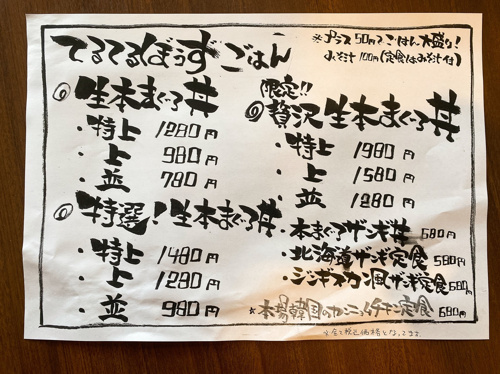 てるてるぼうずごはん
※プラス50円でごはん大盛り!
みそ汁 100円(定食はみそ汁付)
◎生本まぐろ丼
・特上 1280円
・上 980円
・並 780円
◎特選!生本まぐろ丼
・特上 1480円
・上 1280円
・並 980円
限定!!
◎贅沢生本まぐろ丼
・特上 1980円
・上 1580円
・並 1280円
・本まぐろザンギ丼 680円
・北海道ザンギ定食 580円
・ジンギスカン風ザンギ定食 680円
☆本場韓国のヤンニョムチキン定食 680円
※全て税込価格となってます